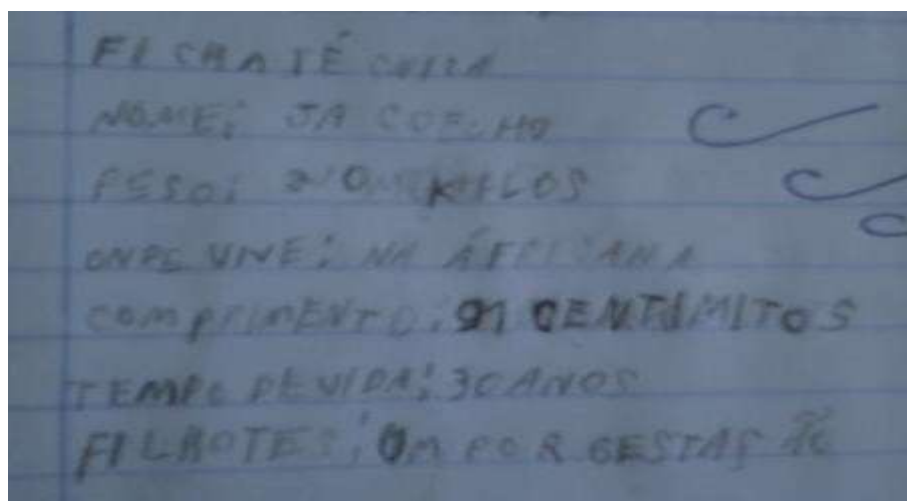 FICHA TÉCNICA
NOME: JA COELHO
PESO: KILOS
ONDE VIVE: NA
COMPRIMENTO: CENTIMITOS
TEMPO DE VIDA: 30 ANOS
FILHOTES: UM POR GESTAS